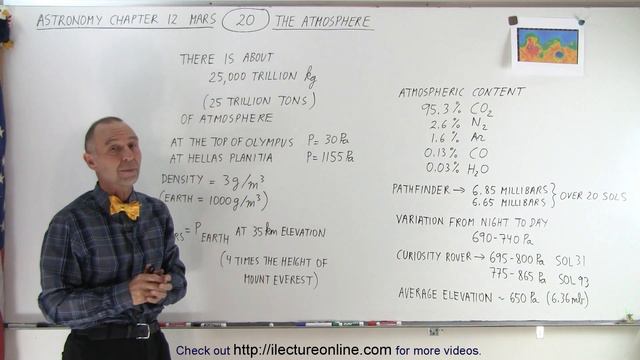 ASTRONOMY CHAPTER 12 MARS 20 THE ATMOSPHERE
THERE IS ABOUT
25,000 TRILLION kg
(25 TRILLION TONS)
OF ATMOSPHERE
AT THE TOP OF OLYMPUS P= 30 Pa
AT HELLAS PLANITIA P= 1155 Pa
DENSITY = 3g/m³
(EARTH = 1000g/m³)
RS = P EARTH AT 35 km ELEVATION
(4 TIMES THE HEIGHT OF
MOUNT EVEREST)
ATMOSPHERIC CONTENT
95.3% CO₂
2.6% N₂
1.6% Ar
0.13% CO
0.03% H₂O
PATHFINDER → 6.85 MILLIBARS
6.65 MILLIBARS } OVER 20 SOLS
VARIATION FROM NIGHT TO DAY
690-740 Pa
CURIOSITY ROVER → 695-800 Pa SOL 31
775-865 Pa SOL 93
AVERAGE ELEVATION ~ 650 Pa (6.36 mb)
Check out http://ilectureonline.com for more videos.